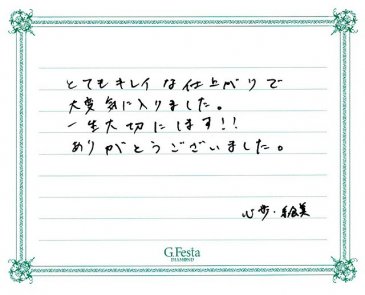 とてもキレイな仕上がりで
大変気に入りました。
一生大切にします!!
ありがとうございました。
心歩・絵美
G.Festa
DIAMOND